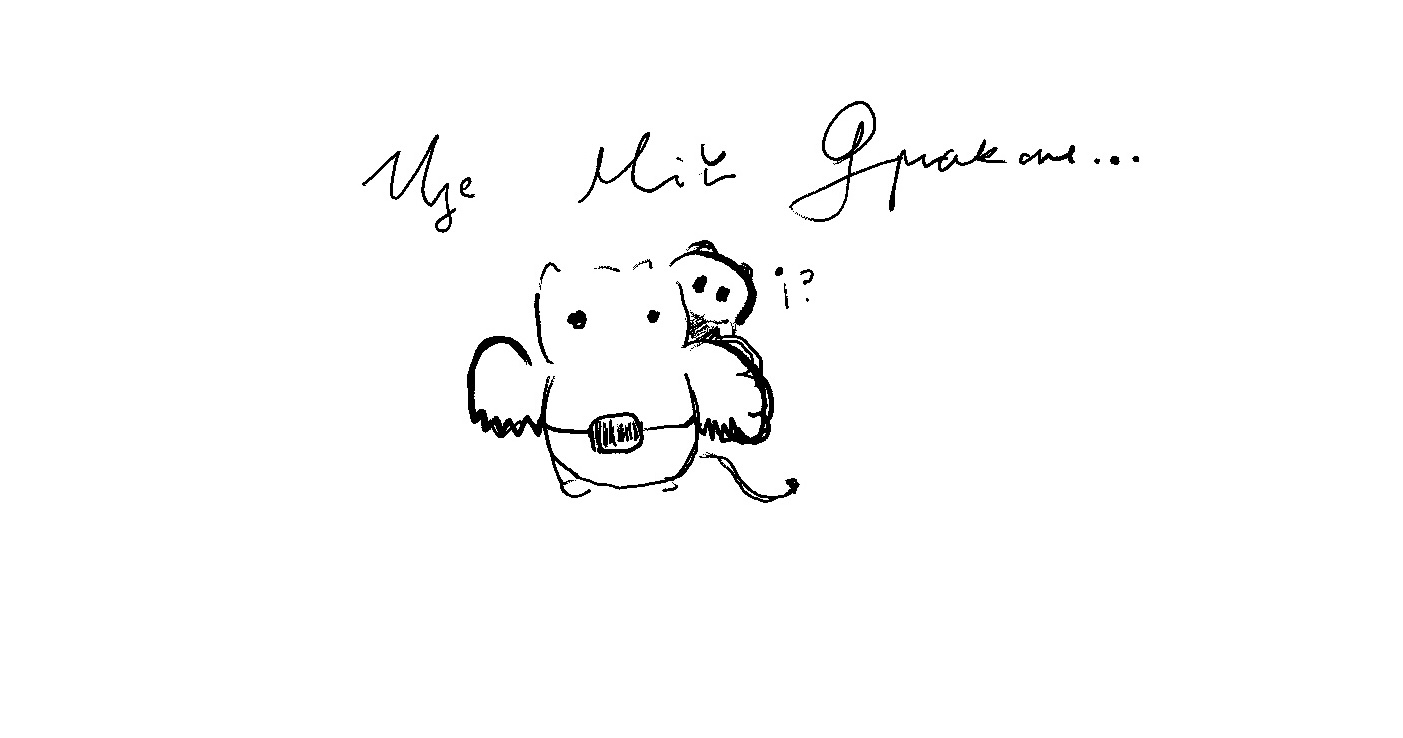 Це Мій Дракон...
і?